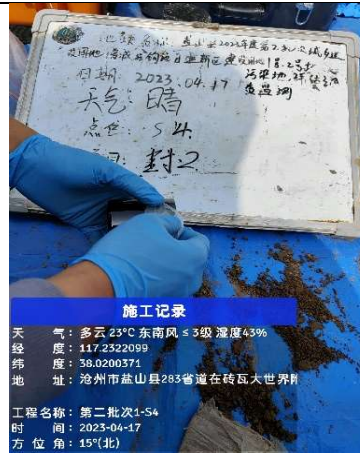 地块名称：盐山县2023年度第2批次城乡建
设用地
1号、2号
日期：2023.04.17
污染地
天气：晴
点位：S4
封口
施工记录
天　　气：多云 23℃ 东南风 ≤ 3级 湿度43%
经　　度：117.2322099
纬　　度：38.0200371
地　　址：沧州市盐山县283省道在砖瓦大世界附
工程名称：第二批次1-S4
时　　间：2023-04-17
方 位 角：15°(北)